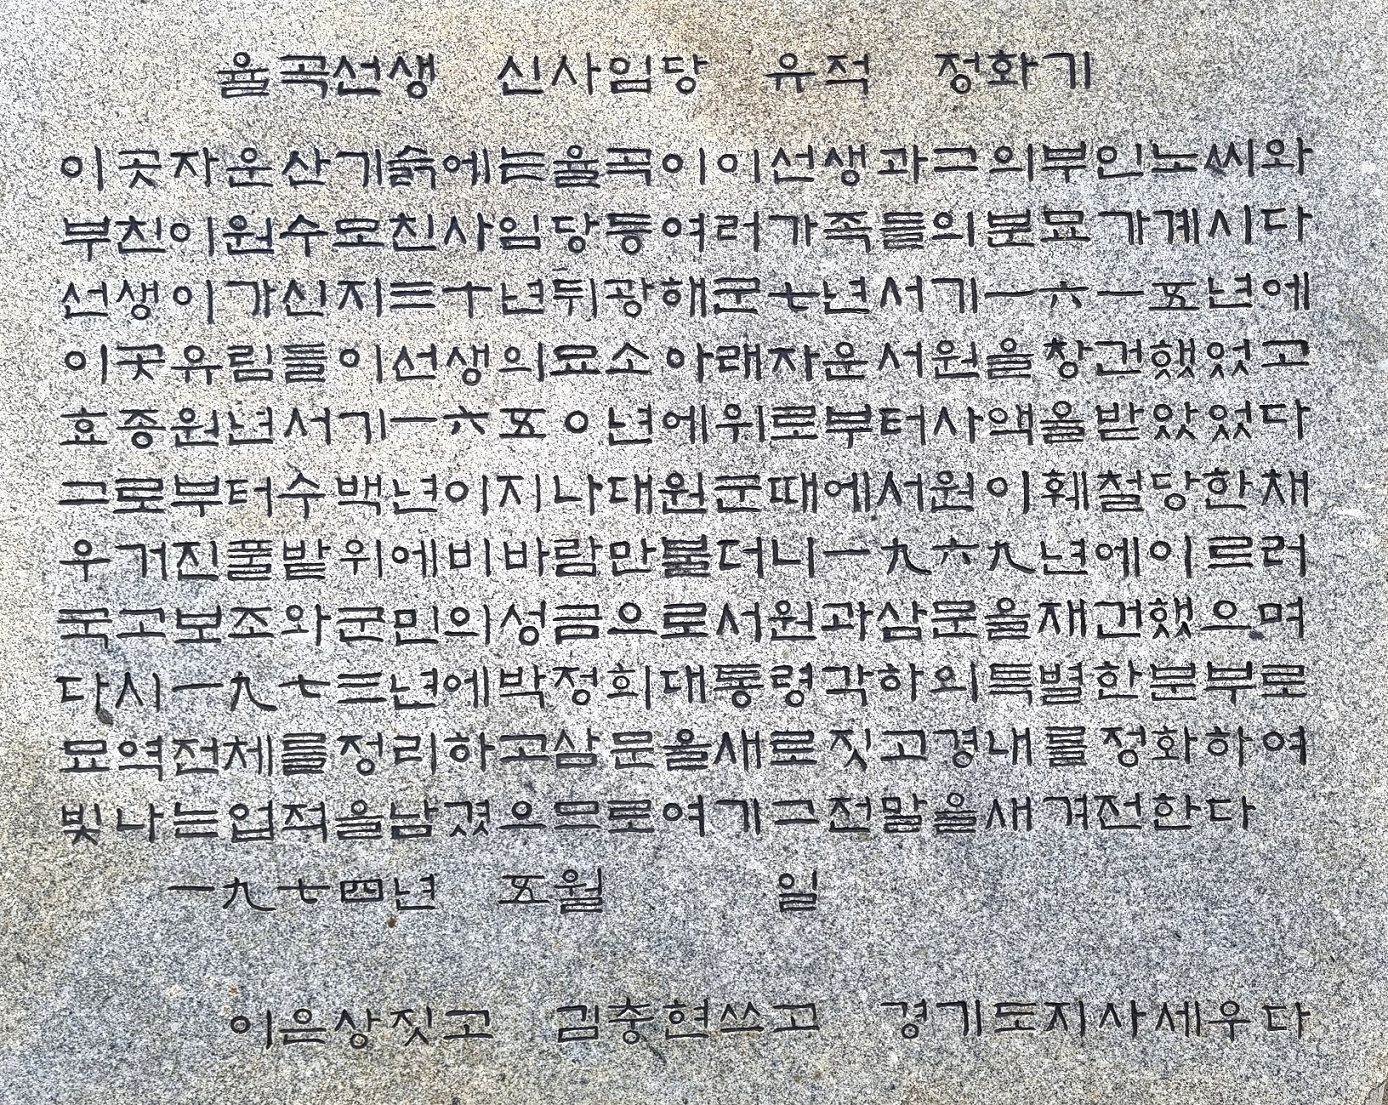 율곡선생 신사임당 유적 정화기
이곳자운산기슭에는율곡이이선생과그의부인노씨와
부친이원수모친사임당등여러가족들의분묘가계시다
선생이가신지三十년뒤광해군七년서기一六一五년에
이곳유림들이선생의묘소아래자운서원을창건했었고
효종원년서기一六五〇년에위로부터사액을받았었다
그로부터수백년이지나대원군때에서원이훼철당한채
우거진풀밭위에비바람만불더니一九六九년에이르러
국고보조와군민의성금으로서원과삼문을재건했으며
다시一九七三년에박정희대통령각하의특별한분부로
묘역전체를정리하고삼문을새로짓고경내를정화하여
빛나는업적을남겼으므로여기그전말을새겨전한다
一九七四년 五월 일
이은상짓고 김충현쓰고 경기도지사세우다